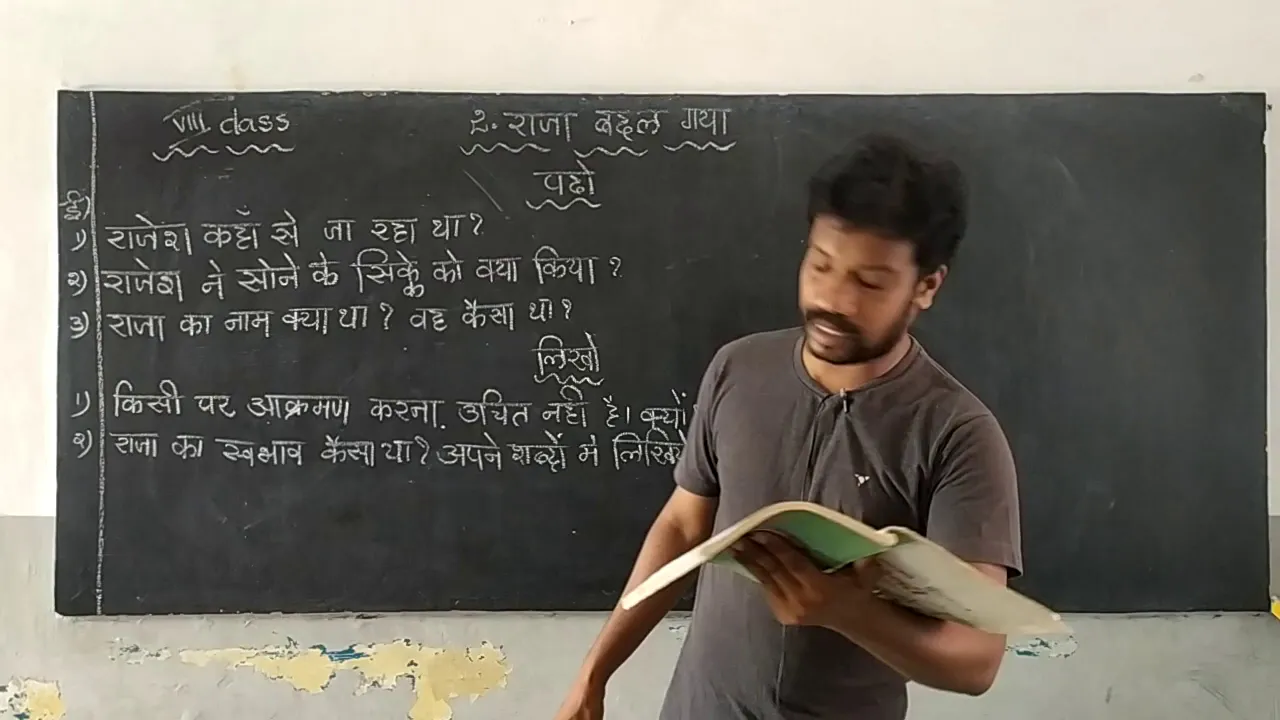 VIII class
२. राजा बदल गया
पढो
ई)
१) राजेश कहाँ से जा रहा था?
२) राजेश ने सोने के सिक्के को क्या किया?
३) राजा का नाम क्या था? वह कैसा था?
लिखो
१) किसी पर आक्रमण करना उचित नहीं है। क्यों
२) राजा का स्वभाव कैसा था? अपने शब्दों में लिखिये